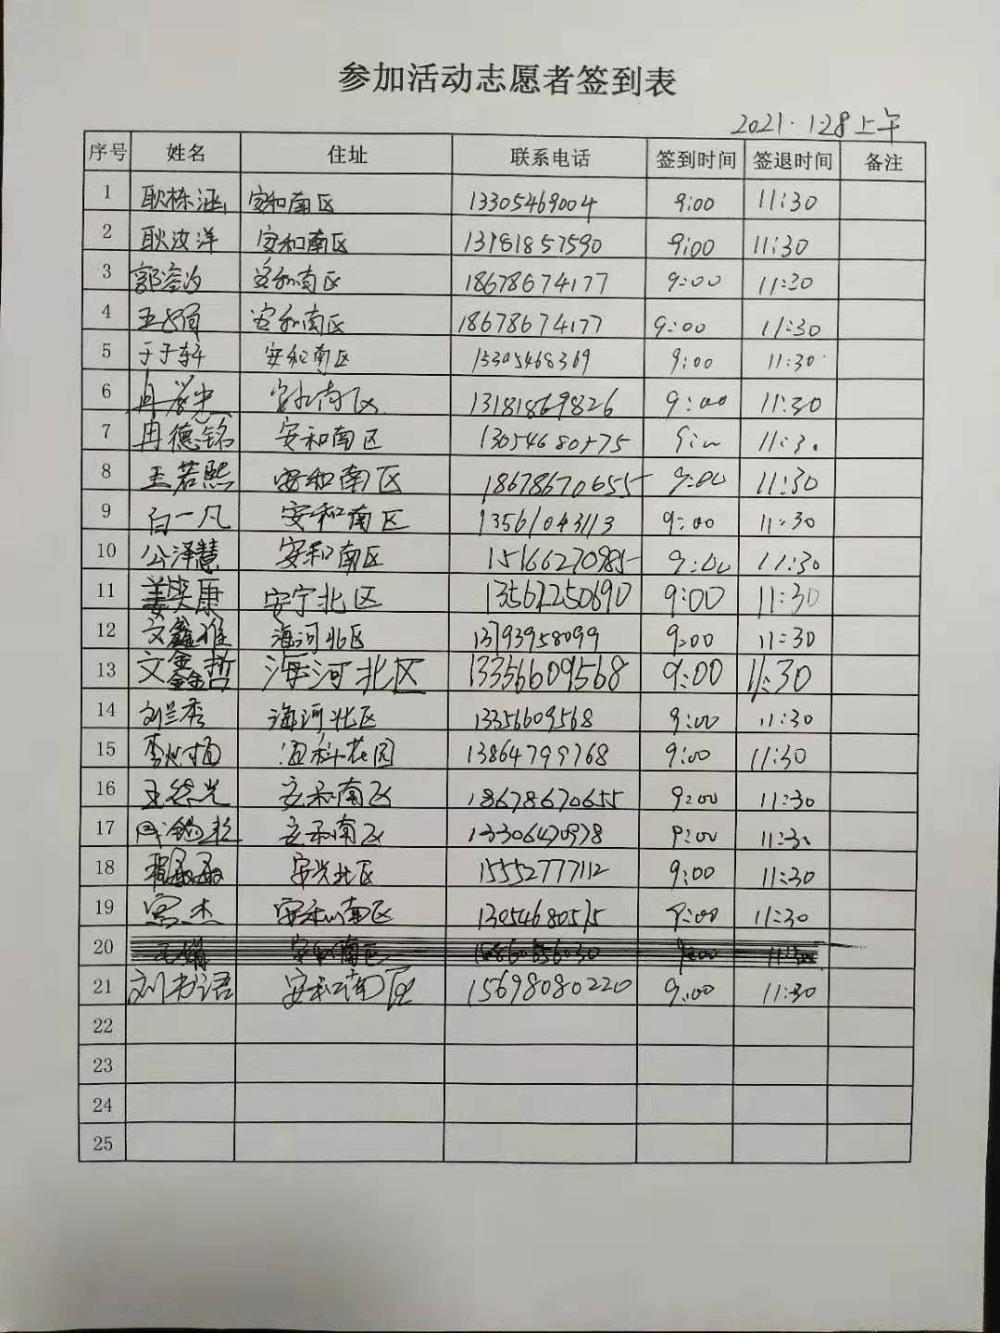 参加活动志愿者签到表
2021.1.28上午
序号 姓名 住址 联系电话 签到时间 签退时间 备注
1 耿栋涵 安和南区 13305469004 9:00 11:30
2 耿汝洋 安和南区 13181857590 9:00 11:30
3 安和南区 18678674177 9:00 11:30
4 安和南区 18678674177 9:00 11:30
5 于子轩 安和南区 15305468369 9:00 11:30
6 安和南区 13181869826 9:00 11:30
7 冉德铭 安和南区 9:00 11:30
8 王若熙 安和南区 18678670655 9:00 11:30
9 白一凡 安和南区 13561043113 9:00 11:30
10 公泽慧 安和南区 15166270985 9:00 11:30
11 姜奕康 安宁北区 13561250690 9:00 11:30
12 文鑫雅 海河北区 13793958099 9:00 11:30
13 文鑫哲 海河北区 13356609568 9:00 11:30
14 刘兰秀 海河北区 13356609568 9:00 11:30
15 花园 13864799768 9:00 11:30
16 安和南区 18678670655 9:00 11:30
17 安和南区 13306470978 9:00 11:30
18 安兴北区 15552777112 9:00 11:30
19 宫杰 安和南区 9:00 11:30
20 安和南区 9:00 11:30
21 刘书语 安和南区 15698080220 9:00 11:30
22
23
24
25